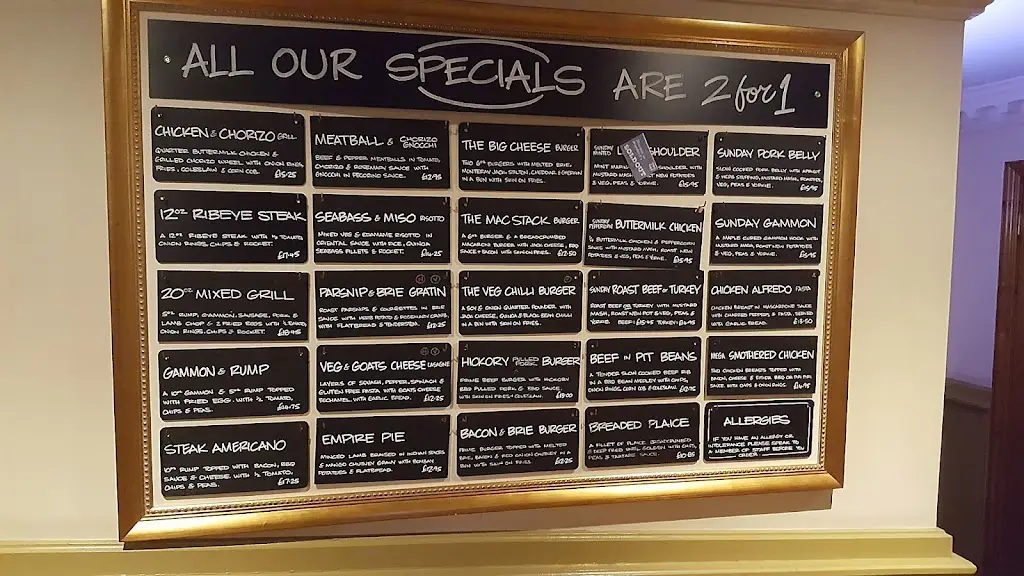 ALL OUR SPECIALS ARE 2 for 1
CHICKEN & CHORIZO GRILL
QUARTER BUTTERMILK CHICKEN &
GRILLED CHORIZO WHEEL WITH ONION RINGS,
FRIES, COLESLAW & CORN COB.
£15.25
12oz RIBEYE STEAK
A 12oz RIBEYE STEAK WITH ½ TOMATO,
ONION RINGS, CHIPS & ROCKET.
£17.45
20oz MIXED GRILL
5oz RUMP, GAMMON, SAUSAGE, PORK &
LAMB CHOP & 2 FRIED EGGS WITH ½ TOMATO,
ONION RINGS, CHIPS & ROCKET.
£18.95
GAMMON & RUMP
A 10oz GAMMON & 5oz RUMP TOPPED
WITH FRIED EGG. WITH ½ TOMATO,
CHIPS & PEAS.
£14.75
STEAK AMERICANO
10oz RUMP TOPPED WITH BACON, BBQ
SAUCE & CHEESE. WITH ½ TOMATO,
CHIPS & PEAS.
£17.25
MEATBALL & CHORIZO GNOCCHI
BEEF & PEPPER MEATBALLS IN TOMATO,
CHORIZO & ROSEMARY SAUCE WITH
GNOCCHI IN PECORINO SAUCE.
£12.95
SEABASS & MISO RISOTTO
MIXED VEG & EDAMAME RISOTTO IN
ORIENTAL SAUCE WITH RICE, QUINOA
SEABASS FILLETS & ROCKET.
£14.25
PARSNIP & BRIE GRATIN
ROAST PARSNIPS & COURGETTES IN BRIE
SAUCE WITH HERB POTATO & ROSEMARY CRUMB,
WITH FLATBREAD & TENDERSTEM.
£12.25
VEG & GOATS CHEESE LASAGNE
LAYERS OF SQUASH, PEPPER, SPINACH &
GLUTEN FREE PASTA WITH GOATS CHEESE
BECHAMEL. WITH GARLIC BREAD.
£12.25
EMPIRE PIE
MINCED LAMB BRAISED IN INDIAN SPICES
& MANGO CHUTNEY GRAVY WITH BOMBAY
POTATOES & FLATBREAD.
£12.95
THE BIG CHEESE BURGER
TWO 6oz BURGERS WITH MELTED BRIE,
MONTEREY JACK, STILTON, CHEDDAR & GHERKIN
IN A BUN WITH SKIN ON FRIES.
THE MAC STACK BURGER
A 6oz BURGER & A BREADCRUMBED
MACARONI BURGER WITH JACK CHEESE, BBQ
SAUCE & BACON WITH SKIN ON FRIES.
£12.50
THE VEG CHILLI BURGER
A SOY & ONION QUARTER POUNDER WITH
JACK CHEESE, QUINOA & BLACK BEAN CHILLI
IN A BUN WITH SKIN ON FRIES.
HICKORY PULLED PORK BURGER
PRIME BEEF BURGER WITH HICKORY
BBQ PULLED PORK & BBQ SAUCE.
WITH SKIN ON FRIES & COLESLAW.
£13.00
BACON & BRIE BURGER
PRIME BURGER TOPPED WITH MELTED
BRIE, BACON & RED ONION CHUTNEY IN A
BUN WITH SKIN ON FRIES.
£12.25
SUNDAY MINTED SHOULDER
SOLD OUT
MINT SHOULDER, WITH
MUSTARD MASH, NEW POTATOES
& VEG, PEAS & YORKIE.
£15.95
SUNDAY BUTTERMILK CHICKEN
½ BUTTERMILK CHICKEN & PEPPERCORN
SAUCE WITH MUSTARD MASH, ROAST NEW
POTATOES & VEG, PEAS & YORKIE.
£15.95
SUNDAY ROAST BEEF OR TURKEY
ROAST BEEF OR TURKEY WITH MUSTARD
MASH, ROAST NEW POT & VEG, PEAS &
YORKIE. BEEF: £15.95 TURKEY: £14.95
BEEF IN PIT BEANS
A TENDER SLOW COOKED BEEF RIB
IN A BBQ BEAN MEDLEY WITH CHIPS,
ONION RINGS, CORN COB & COLESLAW.
BREADED PLAICE
A FILLET OF PLAICE BREADCRUMBED
& DEEP FRIED UNTIL GOLDEN WITH CHIPS,
PEAS & TARTARE SAUCE.
£10.85
SUNDAY PORK BELLY
SLOW COOKED PORK BELLY WITH APRICOT
& HERB STUFFING, MUSTARD MASH, POTATOES,
VEG, PEAS & YORKIE.
£15.95
SUNDAY GAMMON
A MAPLE CURED GAMMON HOCK WITH
MUSTARD MASH, ROAST NEW POTATOES
& VEG, PEAS & YORKIE.
£15.95
CHICKEN ALFREDO PASTA
CHICKEN BREAST IN MASCARPONE SAUCE
WITH CHARRED PEPPERS & PASTA, SERVED
WITH GARLIC BREAD.
£13.50
MEGA SMOTHERED CHICKEN
TWO CHICKEN BREASTS TOPPED WITH
BACON, CHEESE & EITHER BBQ OR PERI PERI
SAUCE. WITH CHIPS & ONION RINGS.
£14.95
ALLERGIES
IF YOU HAVE AN ALLERGY OR
INTOLERANCE PLEASE SPEAK TO
A MEMBER OF STAFF BEFORE YOU
ORDER